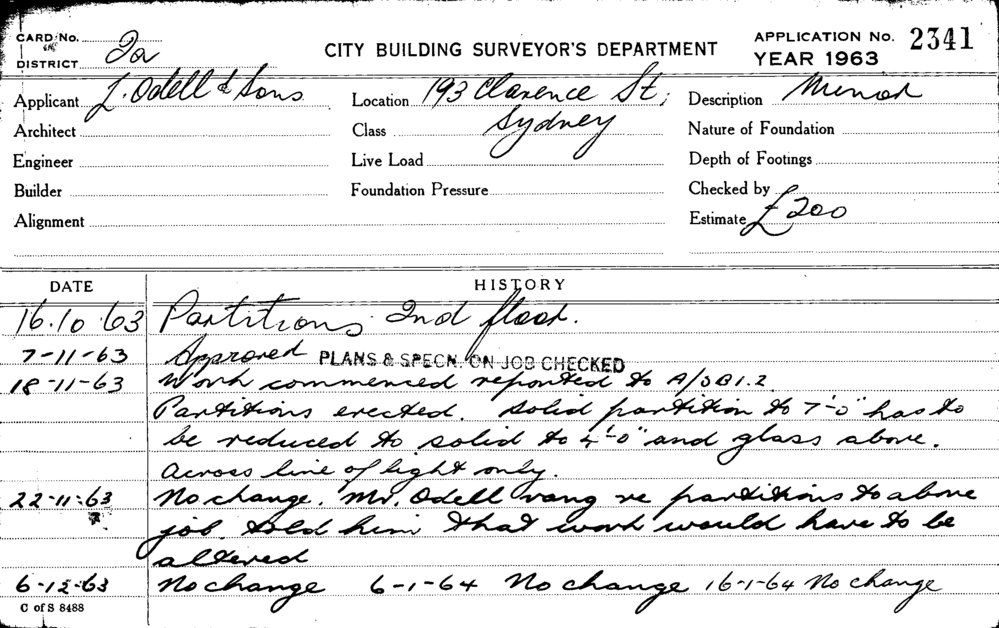 CARD No.
DISTRICT 2a
CITY BUILDING SURVEYOR'S DEPARTMENT
APPLICATION No. 2341
YEAR 1963
Applicant J. Odell & Sons
Location 193 Clarence St, Sydney
Description Minor
Architect
Class
Nature of Foundation
Engineer
Live Load
Depth of Footings
Builder
Foundation Pressure
Checked by
Alignment
Estimate £200
DATE HISTORY
16.10.63 Partitions 2nd floor.
7-11-63 Approved PLANS & SPECN. ON JOB CHECKED
18-11-63 Work commenced reported to A/SB1.2
Partitions erected. Solid partition to 7'-0" has to
be reduced to solid to 4'-0" and glass above.
Across line of light only.
22-11-63 No change. Mr. Odell rang re partitions to above
job. Told him that work would have to be
altered
6-12-63 No change 6-1-64 No change 16-1-64 No change
C of S 8488